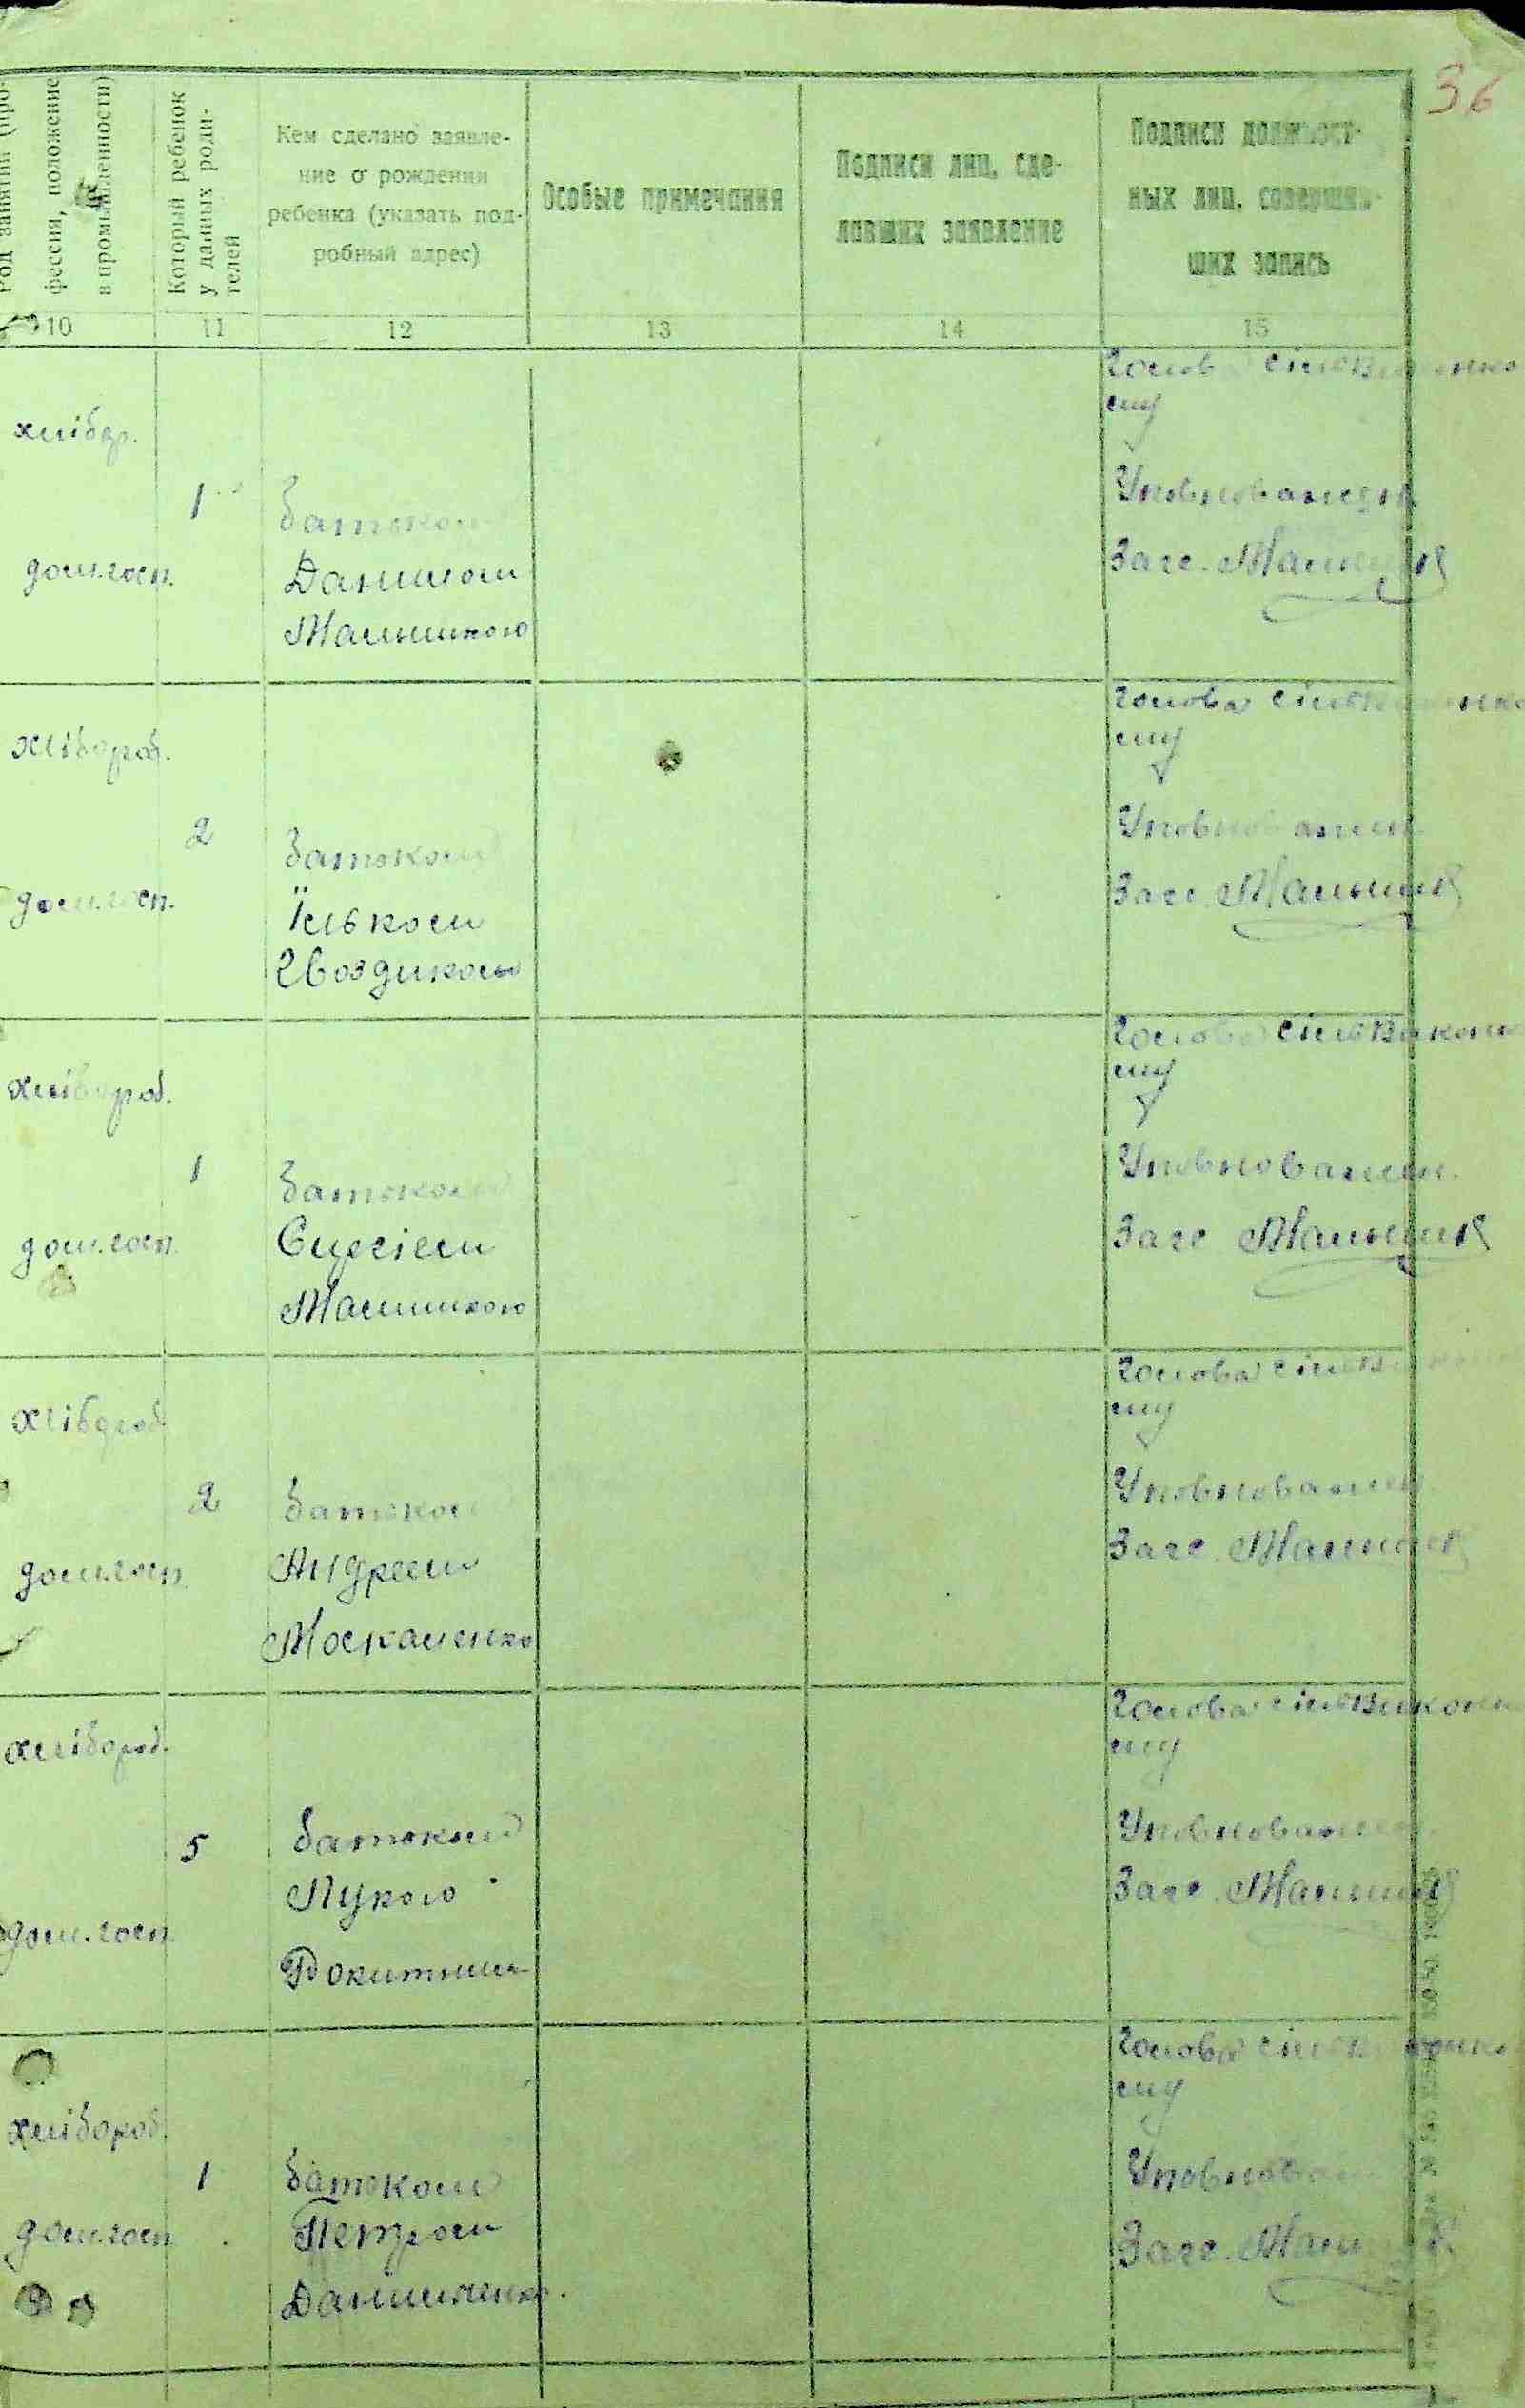 36
Род занятий (про-
фессия, положение
в промышленности)
Который ребенок
у данных роди-
телей
Кем сделано заявле-
ние о рождении
ребенка (указать под-
робный адрес)
Особые примечания
Подписи лиц, сде-
лавших заявление
Подписи должност-
ных лиц, совершив-
ших запись
10 11 12 13 14 15
хлібор.
1
дом.госп.
батьком
Данилом
Малишкою
Голова
му
Уповноважен
Загс.
хлібороб.
2
дом.госп.
батьком
Їльком
Гвоздиком
Голова
му
Уповноважен
Загс.
хлібороб.
1
дом.госп.
батьком
Сергієм
Малишкою
Голова сільвикон
му
Уповноважен.
Загс
хлібороб.
2
дом.госп.
батьком
Андреем
Москаленко
Голова
му
Уповноважен
Загс.
хлібороб.
5
дом.госп.
батьком
Лукою
Рокитним
Голова сільвикон
му
Уповноважен
Загс.
хлібороб.
1
дом.госп.
батьком
Петром
Даниленко.
Голова
му
Уповноважен
Загс.